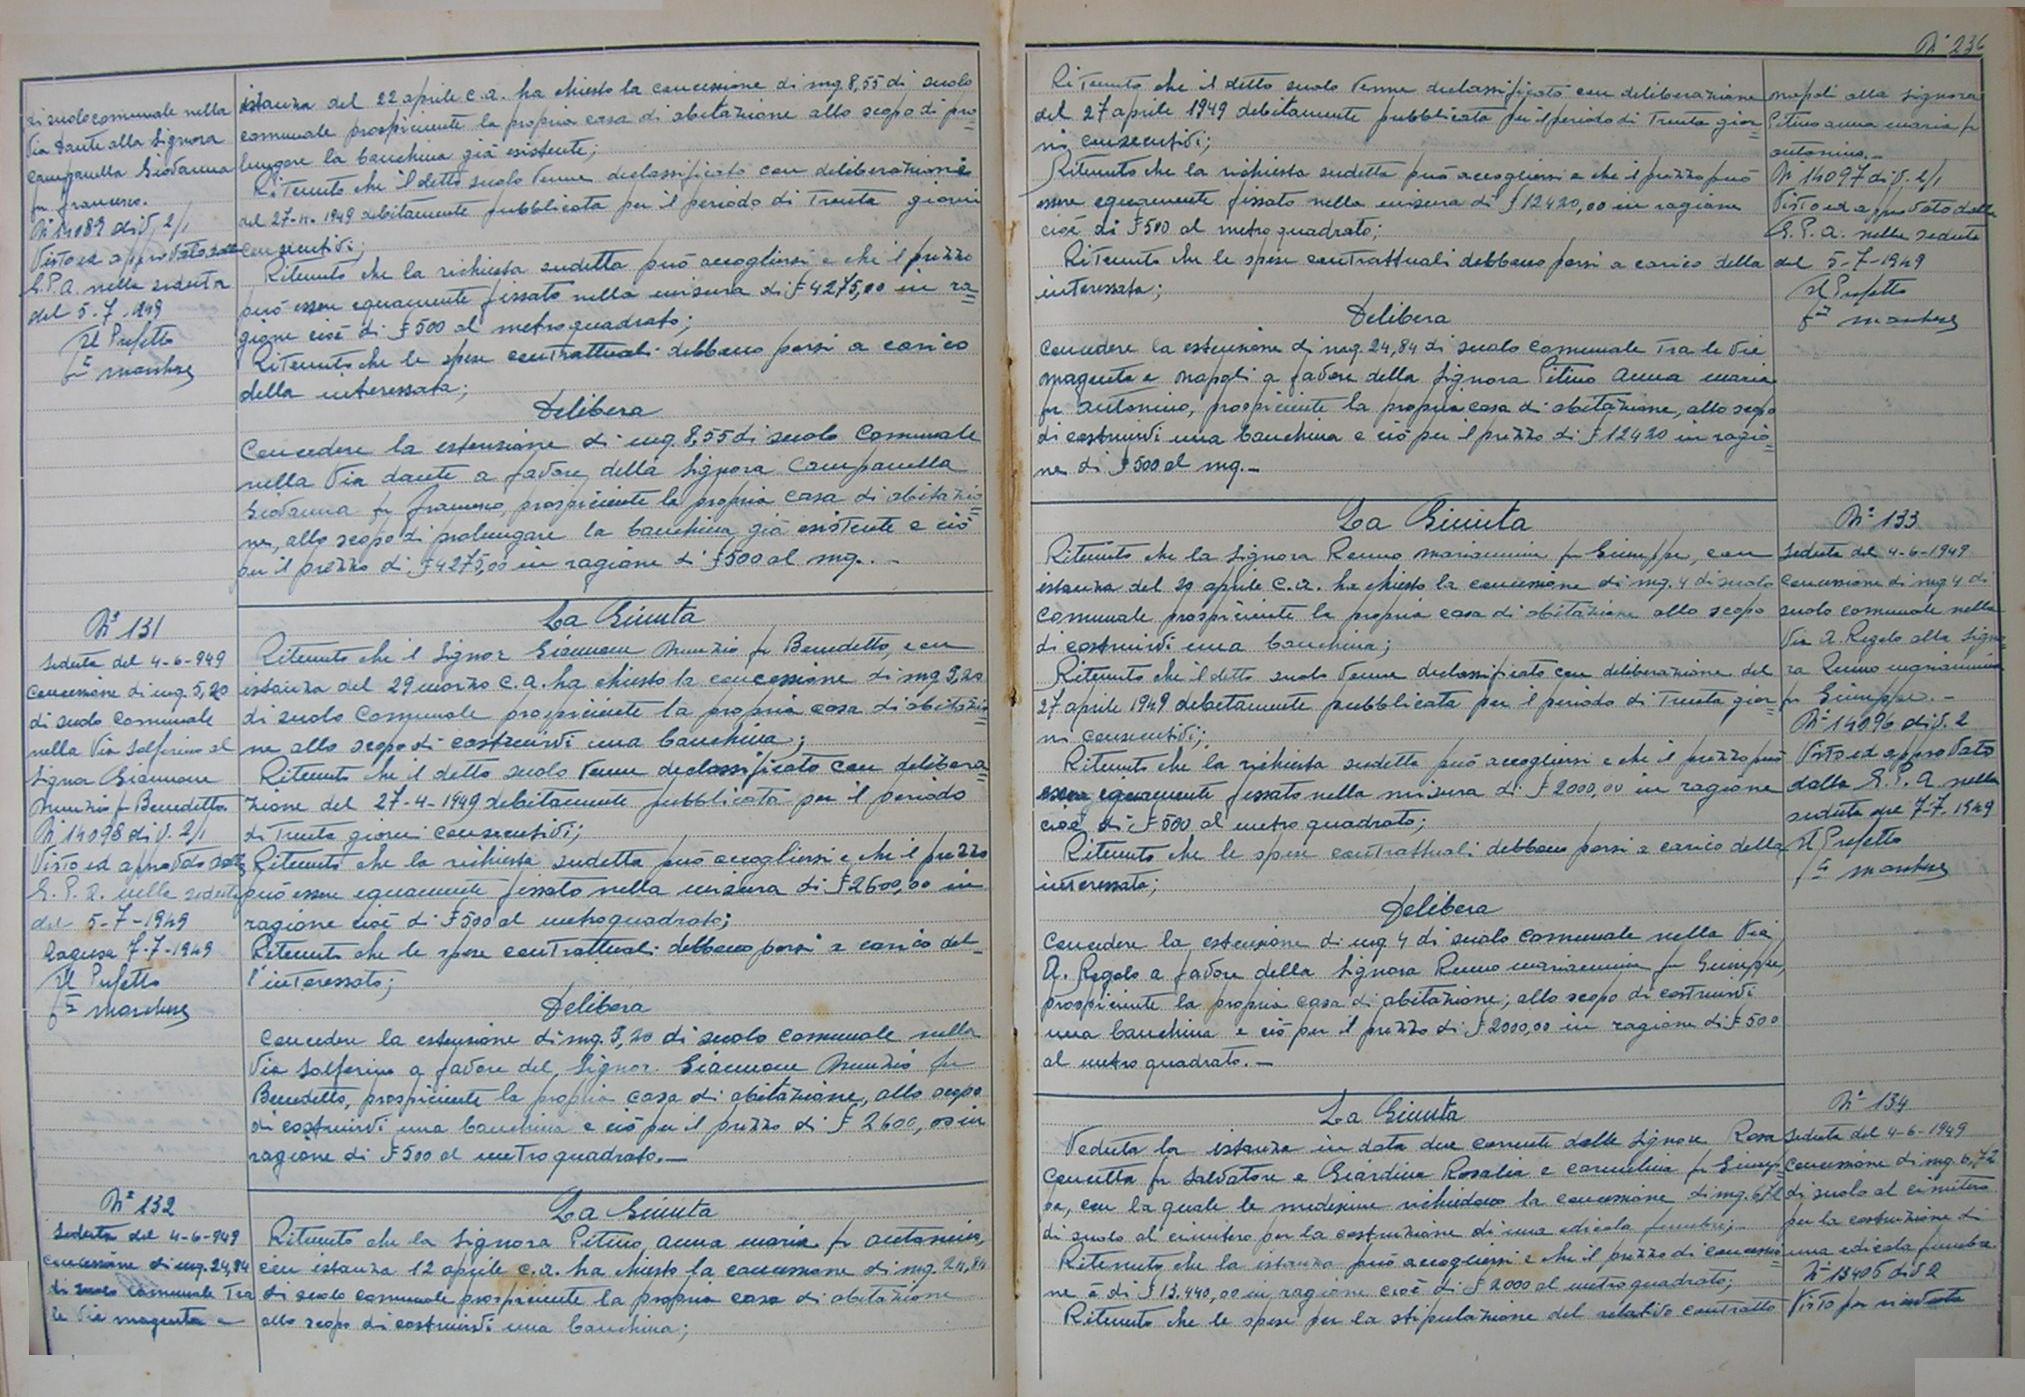 di suolo comunale nella
Via Dante alla Signora
Campanella Giovanna
fu Francesco.
N° 14089 div. 2/1
Visto ed approvato dalla
G. P. A. nella seduta
del 5-7-949
Il Prefetto
fto
istanza del 22 aprile c.a. ha chiesto la concessione di mq. 8,55 di suolo
comunale prospiciente la propria casa di abitazione allo scopo di pro=
lungare la banchina già esistente;
Ritenuto che il detto suolo venne declassificato con deliberazione
del 27-4-1949 debitamente pubblicata per il periodo di trenta giorni
consecutivi;
Ritenuto che la richiesta sudetta può accogliersi e che il prezzo
può essere equamente fissato nella misura di £ 4275,00 in ra=
gione cioè di £ 500 al metro quadrato;
Ritenuto che le spese contrattuali debbano porsi a carico
della interessata;
Delibera
Concedere la estensione di mq. 8,55 di suolo comunale
nella Via Dante a favore della Signora Campanella
Giovanna fu Francesco, prospiciente la propria casa di abitazio=
ne, allo scopo di prolungare la banchina già esistente e ciò
per il prezzo di £ 4275,00 in ragione di £ 500 al mq. -
N° 131
Seduta del 4-6-949
Concessione di mq. 5,20
di suolo comunale
nella Via Solferino al
Signor Giannone
Nunzio fu Benedetto
N° 14098 div. 2/1
Visto ed approvato dalla
G. P. A. nella seduta
del 5-7-1949
Ragusa 7-7-1949
Il Prefetto
fto
La Giunta
Ritenuto che il Signor Giannone Nunzio fu Benedetto, con
istanza del 29 marzo c.a. ha chiesto la concessione di mq 5,20
di suolo comunale prospiciente la propria casa di abitazio=
ne allo scopo di costruirvi una banchina;
Ritenuto che il detto suolo venne declassificato con delibera=
zione del 27-4-1949 debitamente pubblicata per il periodo
di trenta giorni consecutivi;
Ritenuto che la richiesta sudetta può accogliersi e che il prezzo
può essere equamente fissato nella misura di £ 2600,00 in
ragione cioè di £ 500 al metro quadrato;
Ritenuto che le spese contrattuali debbano porsi a carico del=
l'interessato;
Delibera
Concedere la estensione di mq. 5,20 di suolo comunale nella
Via Solferino a favore del Signor Giannone Nunzio fu
Benedetto, prospiciente la propria casa di abitazione, allo scopo
di costruirvi una banchina e ciò per il prezzo di £ 2600,00 in
ragione di £ 500 al metro quadrato. -
N° 132
Seduta del 4-6-949
Concessione di mq. 24,84
di suolo comunale tra
le Vie Magenta e
La Giunta
Ritenuto che la Signora Pitino Anna Maria fu Antonino,
con istanza 12 aprile c.a. ha chiesto la concessione di mq. 24,84
di suolo comunale prospiciente la propria casa di abitazione
allo scopo di costruirvi una banchina;
N° 236
Ritenuto che il detto suolo venne declassificato con deliberazione
del 27 aprile 1949 debitamente pubblicata per il periodo di trenta gior=
ni consecutivi;
Ritenuto che la richiesta sudetta può accogliersi e che il prezzo può
essere equamente fissato nella misura di £ 12420,00 in ragione
cioè di £ 500 al metro quadrato;
Ritenuto che le spese contrattuali debbano porsi a carico della
interessata;
Delibera
Concedere la estensione di mq. 24,84 di suolo comunale tra le Vie
Magenta e Napoli a favore della Signora Pitino Anna Maria
fu Antonino, prospiciente la propria casa di abitazione, allo scopo
di costruirvi una banchina e ciò per il prezzo di £ 12420 in ragio=
ne di £ 500 al mq. -
Napoli alla Signora
Pitino Anna Maria fu
Antonino. -
N° 14097 div. 2/1
Visto ed approvato dalla
G. P. A. nella seduta
del 5-7-1949
Il Prefetto
fto
La Giunta
Ritenuto che la Signora Mariannina fu Giuseppe, con
istanza del 20 aprile c.a. ha chiesto la concessione di mq. 4 di suolo
comunale prospiciente la propria casa di abitazione allo scopo
di costruirvi una banchina;
Ritenuto che il detto suolo venne declassificato con deliberazione del
27 aprile 1949 debitamente pubblicata per il periodo di trenta gior=
ni consecutivi;
Ritenuto che la richiesta sudetta può accogliersi e che il prezzo può
essere equamente fissato nella misura di £ 2000,00 in ragione
cioè di £ 500 al metro quadrato;
Ritenuto che le spese contrattuali debbano porsi a carico della
interessata;
Delibera
Concedere la estensione di mq 4 di suolo comunale nella Via
A. Regolo a favore della Signora Mariannina fu Giuseppe,
prospiciente la propria casa di abitazione, allo scopo di costruirvi
una banchina e ciò per il prezzo di £ 2000,00 in ragione di £ 500
al metro quadrato. -
N° 133
Seduta del 4-6-1949
Concessione di mq 4 di
suolo comunale nella
Via A. Regolo alla Signo=
ra Mariannina
fu Giuseppe. -
N° 14096 div. 2
Visto ed approvato
dalla G. P. A. nella
seduta del 7-7-1949
Il Prefetto
fto
La Giunta
Veduta la istanza in data due corrente delle Signore Rosa
Concetta fu Salvatore e Giardina Rosalia e Carmelina fu Giusep=
pe, con la quale le medesime richiedono la concessione di mq. 6,72
di suolo al cimitero per la costruzione di una edicola funebre;
Ritenuto che la istanza può accogliersi e che il prezzo di concessio=
ne è di £ 13.440,00 in ragione cioè di £ 2000 al metro quadrato;
Ritenuto che le spese per la stipulazione del relativo contratto
N° 134
Seduta del 4-6-1949
Concessione di mq. 6,72
di suolo al cimitero
per la costruzione di
una edicola funebre.
N° 13406 div 2
Visto per